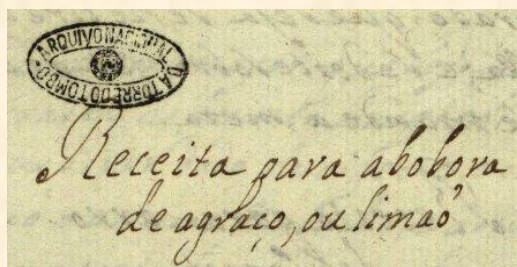 ARQUIVO NACIONAL DA TORRE DO TOMBO
Receita para abobora
de agraço, ou limaõ